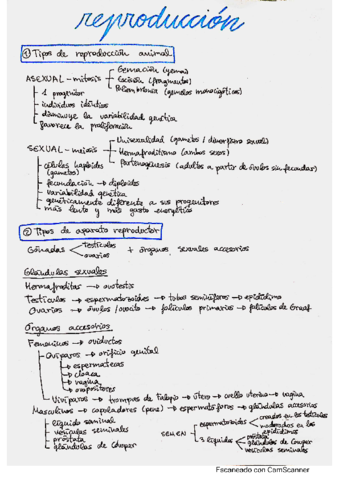 reproducción
① Tipos de reproducción animal
ASEXUAL - mitosis
Gemación (yema)
Escisión (fragmentos)
Poliembrionía (gemelos monocigóticos)
1 progenitor
individuos idénticos
disminuye la variabilidad genética
favorece la proliferación
SEXUAL - meiosis
Unisexualidad (gametos / dimorfismo sexual)
Hermafroditismo (ambos sexos)
Partenogénesis (adultos a partir de óvulos sin fecundar)
células haploides (gametos)
fecundación → diploides
variabilidad genética
genéticamente diferente a sus progenitores
más lento y más gasto energético
② Tipos de aparato reproductor
Gónadas
testículos
ovarios
+ órganos sexuales accesorios
Glándulas sexuales
Hermafroditas → ovotestis
Testículos → espermatozoides → tubos seminíferos → epidídimo
Ovarios → óvulos / ovocito → folículos primarios → folículos de Graaf
Órganos accesorios
Femeninos → oviductos
Ovíparos → orificio genital
espermateca
cloaca
vagina
ovopositores
Vivíparos → trompas de falopio → útero → cuello uterino → vagina
Masculinos → copuladores (pene) → espermatóforos → glándulas accesorias
líquido seminal
vesículas seminales
próstata
glándulas de Cowper
SEMEN
espermatozoides
creados en los testículos
madurados en los epidídimos
3 líquidos
próstata
glándulas de Cowper
vesículas seminales
Escaneado con CamScanner